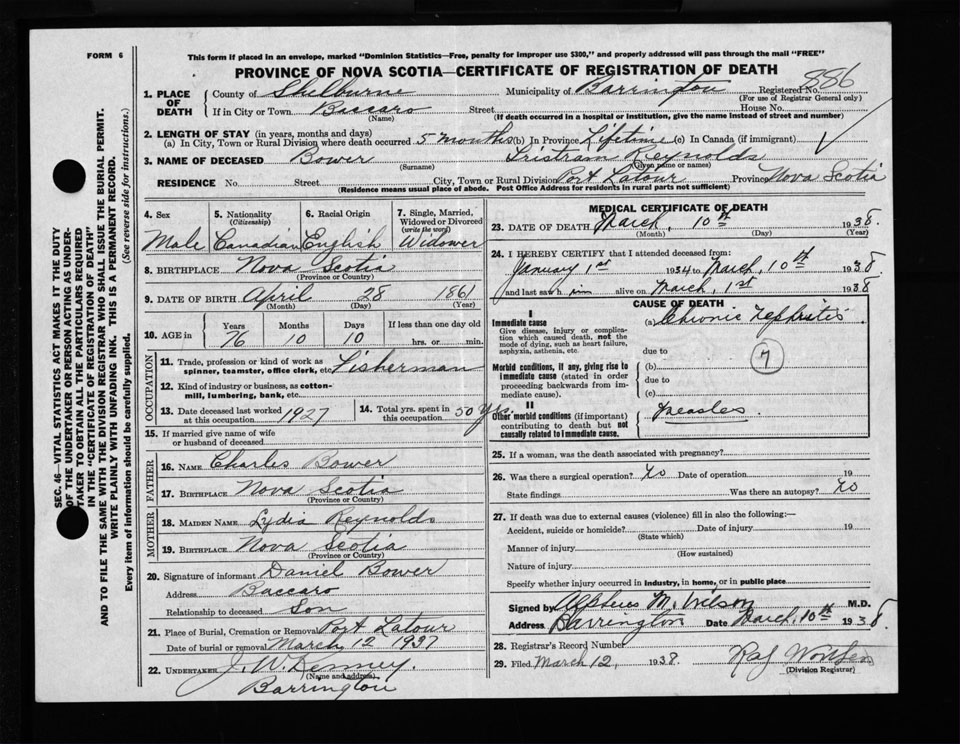 FORM 6
This form if placed in an envelope, marked "Dominion Statistics—Free, penalty for improper use $300," and properly addressed will pass through the mail "FREE"
PROVINCE OF NOVA SCOTIA—CERTIFICATE OF REGISTRATION OF DEATH
886
1. PLACE OF DEATH County of Shelburne Municipality of Barrington Registered No.
(For use of Registrar General only)
If in City or Town Baccaro Street House No.
(Name) (If death occurred in a hospital or institution, give the name instead of street and number)
2. LENGTH OF STAY (in years, months and days)
(a) In City, Town or Rural Division where death occurred 5 months (b) In Province Lifetime (c) In Canada (if immigrant)
3. NAME OF DECEASED Bower Tristram Reynolds
(Surname) (Given name or names)
RESIDENCE No. Street City, Town or Rural Division Port Latour Province Nova Scotia
(Residence means usual place of abode. Post Office Address for residents in rural parts not sufficient)
4. Sex 5. Nationality (Citizenship) 6. Racial Origin 7. Single, Married, Widowed or Divorced (write the word)
Male Canadian English Widower
8. BIRTHPLACE Nova Scotia
(Province or Country)
9. DATE OF BIRTH April 28 1861
(Month) (Day) (Year)
10. AGE in Years Months Days If less than one day old
76 10 10 hrs. or min.
OCCUPATION
11. Trade, profession or kind of work as spinner, teamster, office clerk, etc. Fisherman
12. Kind of industry or business, as cotton-mill, lumbering, bank, etc.
13. Date deceased last worked at this occupation 1927 14. Total yrs. spent in this occupation 50 yrs.
15. If married give name of wife or husband of deceased
FATHER
16. NAME Charles Bower
17. BIRTHPLACE Nova Scotia
(Province or Country)
MOTHER
18. MAIDEN NAME Lydia Reynolds
19. BIRTHPLACE Nova Scotia
(Province or Country)
20. Signature of informant Daniel Bower
Address Baccaro
Relationship to deceased Son
21. Place of Burial, Cremation or Removal Port Latour
Date of burial or removal March 12 1937
22. UNDERTAKER J. W. Kenney.
(Name and address)
Barrington
MEDICAL CERTIFICATE OF DEATH
23. DATE OF DEATH March, 10th 1938.
(Month) (Day) (Year)
24. I HEREBY CERTIFY that I attended deceased from:
January 1st 1934 to March, 10th 1938
and last saw him alive on March, 1st 1938
CAUSE OF DEATH
I
Immediate cause (a) Chronic Nephritis.
Give disease, injury or complication which caused death, not the mode of dying, such as heart failure, asphyxia, asthenia, etc.
due to
7
Morbid conditions, if any, giving rise to immediate cause (stated in order proceeding backwards from immediate cause).
(b)
due to
(c)
II
Other morbid conditions (if important) contributing to death but not causally related to immediate cause. Measles.
25. If a woman, was the death associated with pregnancy?
26. Was there a surgical operation? No Date of operation 19
State findings Was there an autopsy? No
27. If death was due to external causes (violence) fill in also the following:—
Accident, suicide or homicide? Date of injury 19
(State which)
Manner of injury
(How sustained)
Nature of injury
Specify whether injury occurred in industry, in home, or in public place
Signed by Alpheus M. Wilson M.D.
Address Barrington Date March, 10th 1938.
28. Registrar's Record Number
29. Filed March 12, 1938.
(Division Registrar)
SEC. 46—VITAL STATISTICS ACT MAKES IT THE DUTY
OF THE UNDERTAKER OR PERSON ACTING AS UNDER-
TAKER TO OBTAIN ALL THE PARTICULARS REQUIRED
IN THE "CERTIFICATE OF REGISTRATION OF DEATH"
AND TO FILE THE SAME WITH THE DIVISION REGISTRAR WHO SHALL ISSUE THE BURIAL PERMIT.
WRITE PLAINLY WITH UNFADING INK. THIS IS A PERMANENT RECORD.
Every item of information should be carefully supplied. (See reverse side for instructions.)